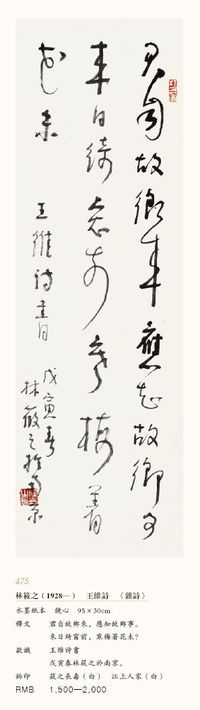 君自故鄉来應知故鄉事
来日綺窓前寒梅著
花未
王維詩書
戊寅春
林筱之於南京
475
林筱之（1928—） 王維詩 《雜詩》
水墨紙本 鏡心 95×30cm
釋文 君自故鄉來，應知故鄉事。
來日綺窗前，寒梅著花未？
款識 王維詩書
戊寅春林筱之於南京。
鈐印 筱之長壽（白） 江上人家（白）
RMB 1,500—2,000